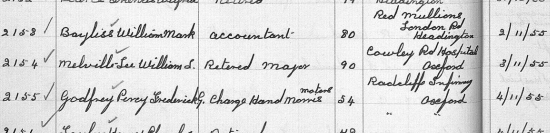 Red Mullions
London Rd
2153 Bayliss William Mark accountant 80 Headington 2/11/55
Cowley Rd Hospital
2154 Melville-Lee William S. Retired Major 90 Oxford 3/11/55
Radcliff Infirmy
2155 Godfrey Percy Frederick G. Charge Hand Morris motors 54 Oxford 4/11/55
" " 4/11/55